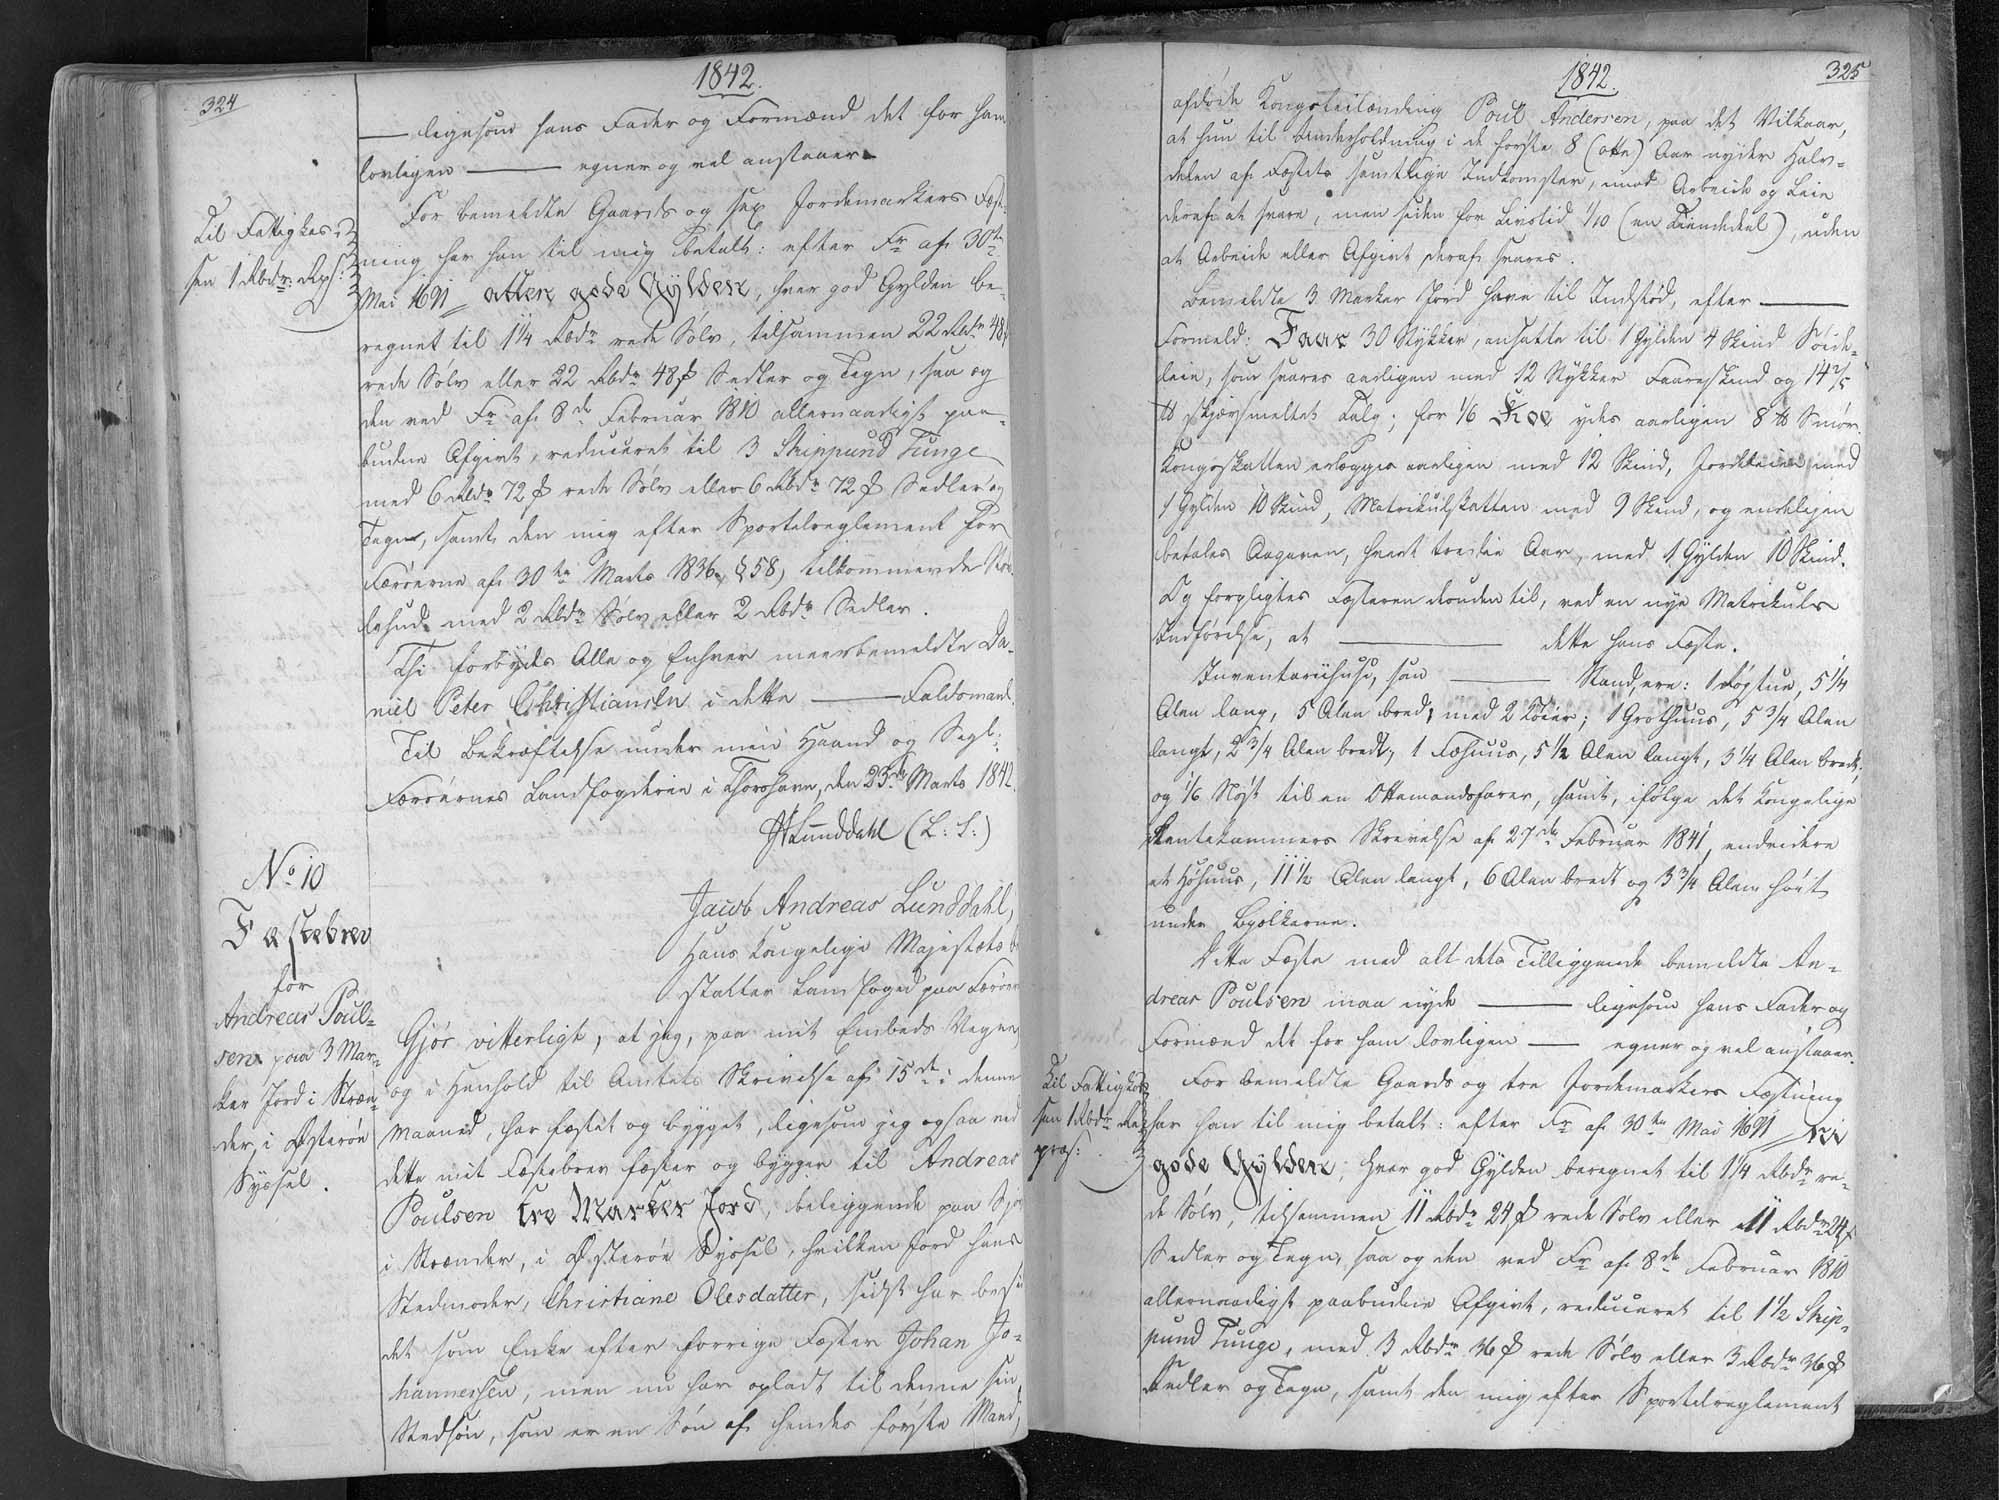 324
1842.
— ligesom hans Fader og Formænd det for ham
lovligen — egner og vel anstaaer.
Til Fattigkas-
sen 1 Rbdr. Rps:
For bemeldte Gaards og sex Jordemarkers Fæst-
ning har han til mig betalt: efter Fr. af 30te
Mai 1691 atten gode Gylden, hver god Gylden be-
regnet til 1 1/4 Rbdr rede Sølv, tilsammen 22 Rbdr 48 ß
rede Sølv eller 22 Rbdr 48 ß Sedler og Tegn, saa og
den ved Fr. af 8de Februar 1810 allernaadigst paa-
budne Afgivt, reduceret til 3 Skippund Tunge
med 6 Rbdr 72 ß rede Sølv eller 6 Rbdr 72 ß Sedler og
Tegn, samt den mig efter Sportelreglement for
Færøerne af 30te Marts 1836, § 58, tilkommende
med 2 Rbdr Sølv eller 2 Rbdr Sedler.
Thi forbydes Alle og Enhver meerbemeldte Da-
niel Peter Christiansen i dette — Faldsmaal.
Til Bekræftelse under min Haand og Segl.
Færøernes Landfogderie i Thorshavn, den 23de Marts 1842.
HLunddahl (L: S:)
No 10
Fæstebrev
for
Andreas Poul-
sen paa 3 Mar-
ker Jord i Stræn-
der, i Østerøe
Syssel.
Jacob Andreas Lunddahl,
Hans Kongelige Majestæts be-
stalter Landfoged paa Færøerne
Gjør vitterligt, at jeg, paa mit Embeds Vegne,
og i Henhold til Amtets Skrivelse af 15de i denne
Maaned, har fæstet og bygget, ligesom jeg ogsaa ved
dette mit Fæstebrev fæster og bygger til Andreas
Poulsen tre Marker Jord, beliggende paa
i Strænder, i Østerøe Syssel, hvilken Jord hans
Stedmoder, Christiane Olesdatter, sidst har besid-
det som Enke efter forrige Fæster Johan Jo-
hannessen, men nu har opladt til denne sin
Stedsøn, som er en Søn af hendes første Mand,
1842.
325
afdøde Kongsleilænding Poul Andersen, paa det Vilkaar,
at hun til Underholdning i de første 8 (otte) Aar nyder Halv-
delen af Fæstets samtlige Indkomster, imod Arbeide og Leie
deraf at svare, men siden for Livstid 1/10 (en Tiendedeel), uden
at Arbeide eller Afgivt deraf svares.
Bemeldte 3 Marker Jord have til Indstød, efter —
Formeld: Faar 30 Stykker, ansatte til 1 Gylden 4 Skind Søide-
leie, som svares aarligen med 12 Stykker Faareskind og 14 2/5
℔ skjørsmeltet Talg; for 1/6 Koe ydes aarligen 8 ℔ Smør.
Kongsskatten erlægges aarligen med 12 Skind, Jordeleien med
1 Gylden 10 Skind, Matrikulskatten med 9 Skind, og endeligen
betales Aagaven, hvert tredie Aar, med 1 Gylden 10 Skind.
Og forpligtes Fæsteren desuden til, ved en nye Matrikuls
Indførelse, at — dette hans Fæste.
Inventariihuse, som — Stand, ere: 1 Røgstue, 5 1/4
Alen lang, 5 Alen bred, med 2 Køier; 1 Grothuus, 5 3/4 Alen
langt, 2 3/4 Alen bredt; 1 Fæhuus, 5 1/2 Alen langt, 3 1/4 Alen bredt;
og 1/6 Nøst til en Ottemandsfarer, samt, ifølge det Kongelige
Rentekammers Skrivelse af 27de Februar 1841, endvidere
et Høhuus, 11 1/2 Alen langt, 6 Alen bredt og 3 3/4 Alen høit
under Bjælkerne.
Dette Fæste med alt dets Tilliggende bemeldte An-
dreas Poulsen maa nyde — ligesom hans Fader og
Formænd det for ham lovligen — egner og vel anstaaer.
Til Fattigkas-
sen 1 Rbdr. Re-
præs:
For bemeldte Gaards og tre Jordemarkers Fæstning
har han til mig betalt: efter Fr. af 30te Mai 1691 Ni
gode Gylden, hver god Gylden beregnet til 1 1/4 Rbdr re-
de Sølv, tilsammen 11 Rbdr 24 ß rede Sølv eller 11 Rbdr 24 ß
Sedler og Tegn, saa og den ved Fr. af 8de Februar 1810
allernaadigst paabudne Afgivt, reduceret til 1 1/2 Skip-
pund Tunge, med 3 Rbdr 36 ß rede Sølv eller 3 Rbdr 36 ß
Sedler og Tegn, samt den mig efter Sportelreglement